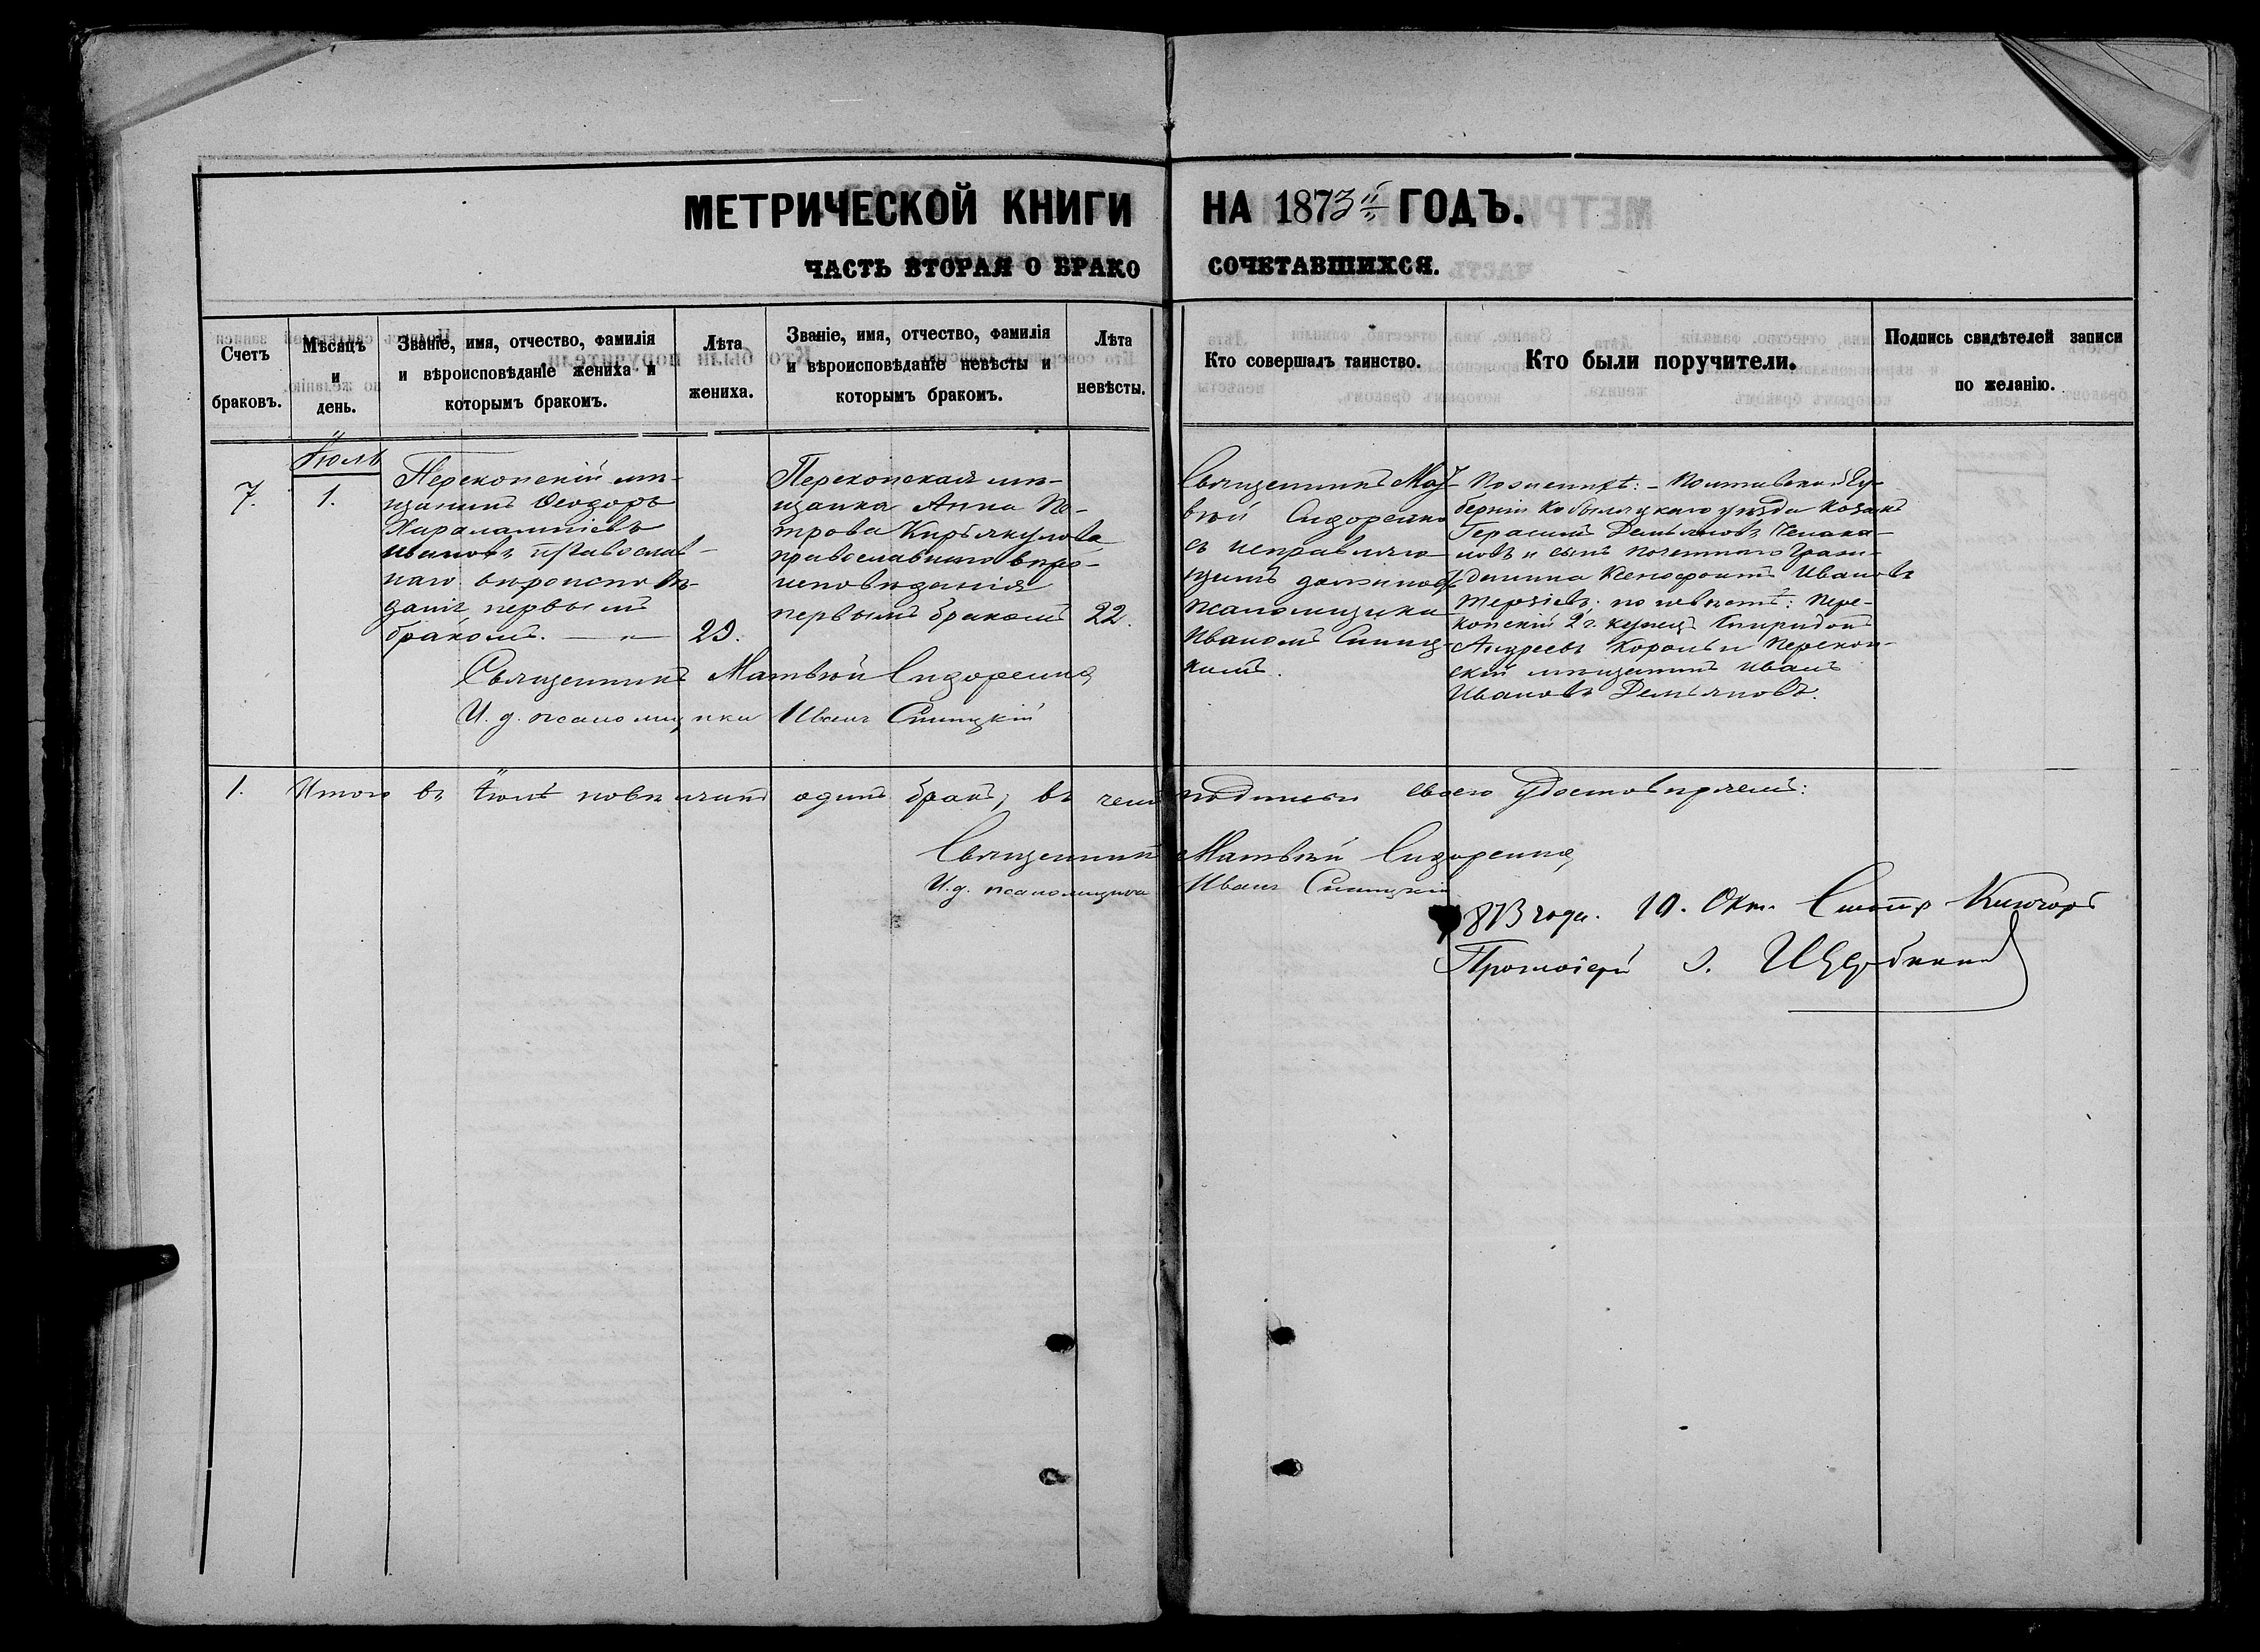 МЕТРИЧЕСКОЙ КНИГИ НА 1873й ГОДЪ.
ЧАСТЬ ВТОРАЯ О БРАКОСОЧЕТАВШИХСЯ.
Счетъ
браковъ.
Мѣсяцъ
и
день.
Званіе, имя, отчество, фамилія
и вѣроисповѣданіе жениха и
которымъ бракомъ.
Лѣта
жениха.
Званіе, имя, отчество, фамилія
и вѣроисповѣданіе невѣсты и
которымъ бракомъ.
Лѣта
невѣсты.
Кто совершалъ таинство.
Кто были поручители.
Подпись свидѣтелей записи
по желанію.
7.
Іюль
1.
Перекопскій мѣ-
щанинъ Ѳеодоръ
Харалампіевъ
Ивановъ православ-
наго вѣроисповѣ-
данія первымъ
бракомъ.
29.
Перекопская мѣ-
щанка Анна Пе-
трова Кирьякулова
православнаго вѣро-
исповѣданія
первымъ бракомъ
22.
Священникъ Мат-
вѣй Сидоренко
съ исправляю-
щимъ должность
псаломщика
Иваномъ Синиц-
кимъ.
По женихѣ: Полтавской Гу-
берніи Кобыляцкаго уѣзда козакъ
Герасимъ Демьяновъ
и сынъ почетнаго граж-
данина Ксенофонтъ Ивановъ
Терзіевъ; по невѣстѣ: Пере-
копскій 2 г. купецъ Спиридонъ
Андреевъ Король и Перекоп-
скій мѣщанинъ Иванъ
Ивановъ Демьяновъ.
Священникъ Матвѣй Сидоренко,
И. д. псаломщика Иванъ Синицкій
1. Итого въ Іюлѣ повѣнчанъ одинъ бракъ, въ чемъ подписью своею удостовѣряемъ:
Священникъ Матвѣй Сидоренко,
И. д. псаломщика Иванъ Синицкій
1873 года. 10. Окт.
Протоіерей